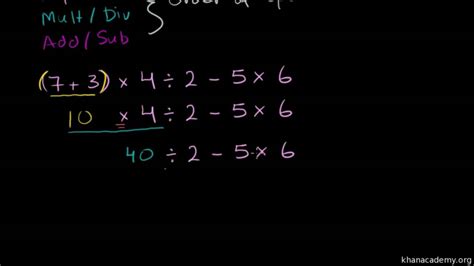 Mult/Div
Add/Sub
(7 + 3) × 4 ÷ 2 - 5 × 6
10 × 4 ÷ 2 - 5 × 6
40 ÷ 2 - 5 × 6
khanacademy.org